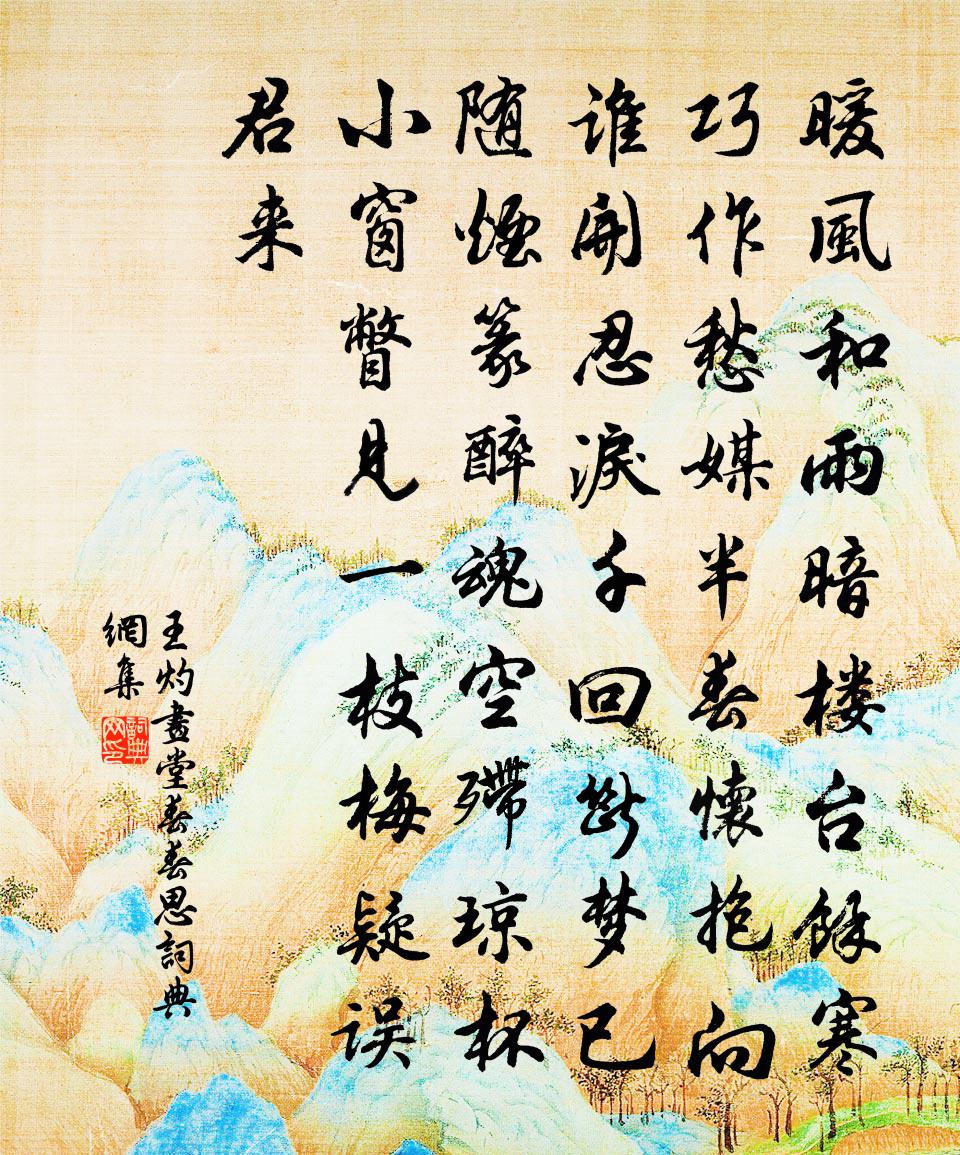 暖風和雨暗楼台餘寒
巧作愁媒半春懷抱向
谁開忍淚千回断梦已
随煙篆醉魂空殢琼杯
小窗瞥見一枝梅疑误
君来
王灼畫堂春春思詞典
網集
詞典
网印